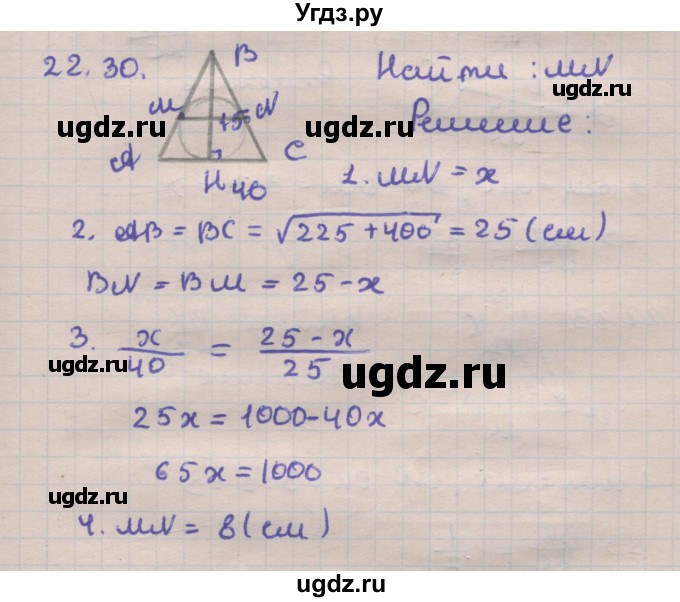 Угдз.ру
22.30.
B
Найти : MN
ugdz.ru
M
N
15
ugdz.ru
ugdz.ru
Решение :
A
C
H
40
1. MN = x
2. AB = BC = √225 + 400 = 25 (см)
BN = BM = 25 - x
3. x/40 = (25 - x)/25
ugdz.ru
ugdz.ru
25x = 1000 - 40x
65x = 1000
ugdz.ru
4. MN = 8 (см)
ugdz.ru
ugdz.ru